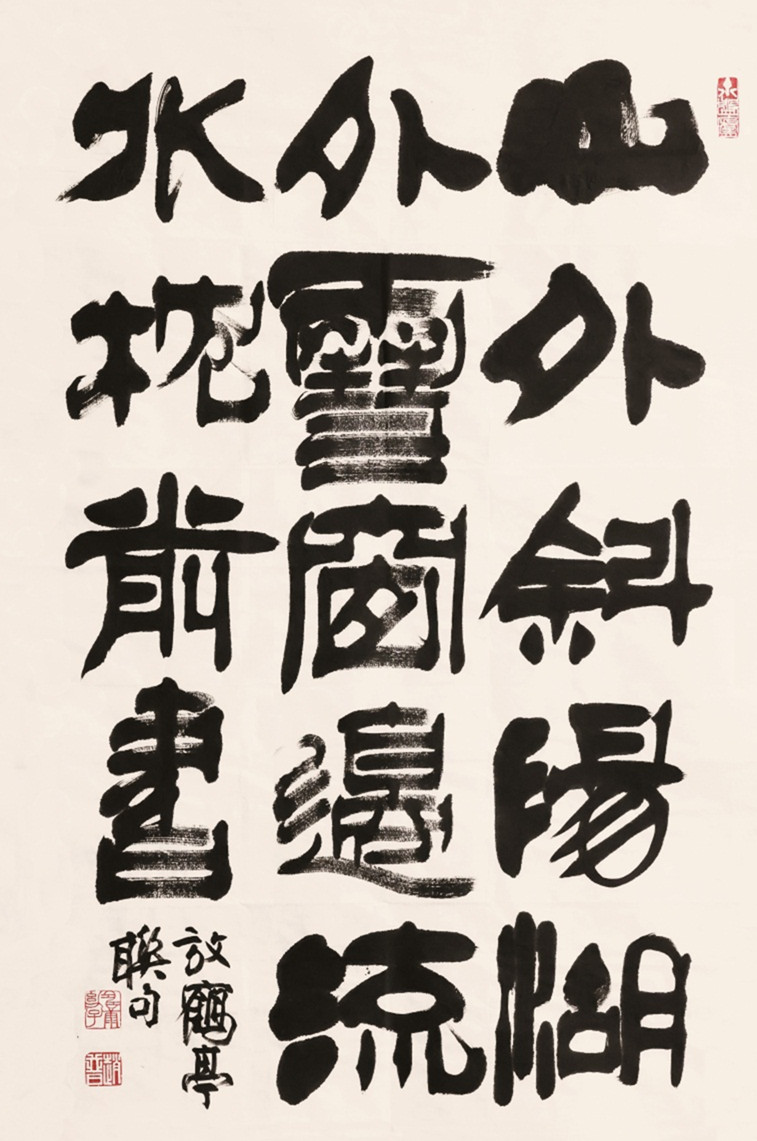 山外斜陽湖
外雪窗邊流
水枕前書
放鶴亭
聯句